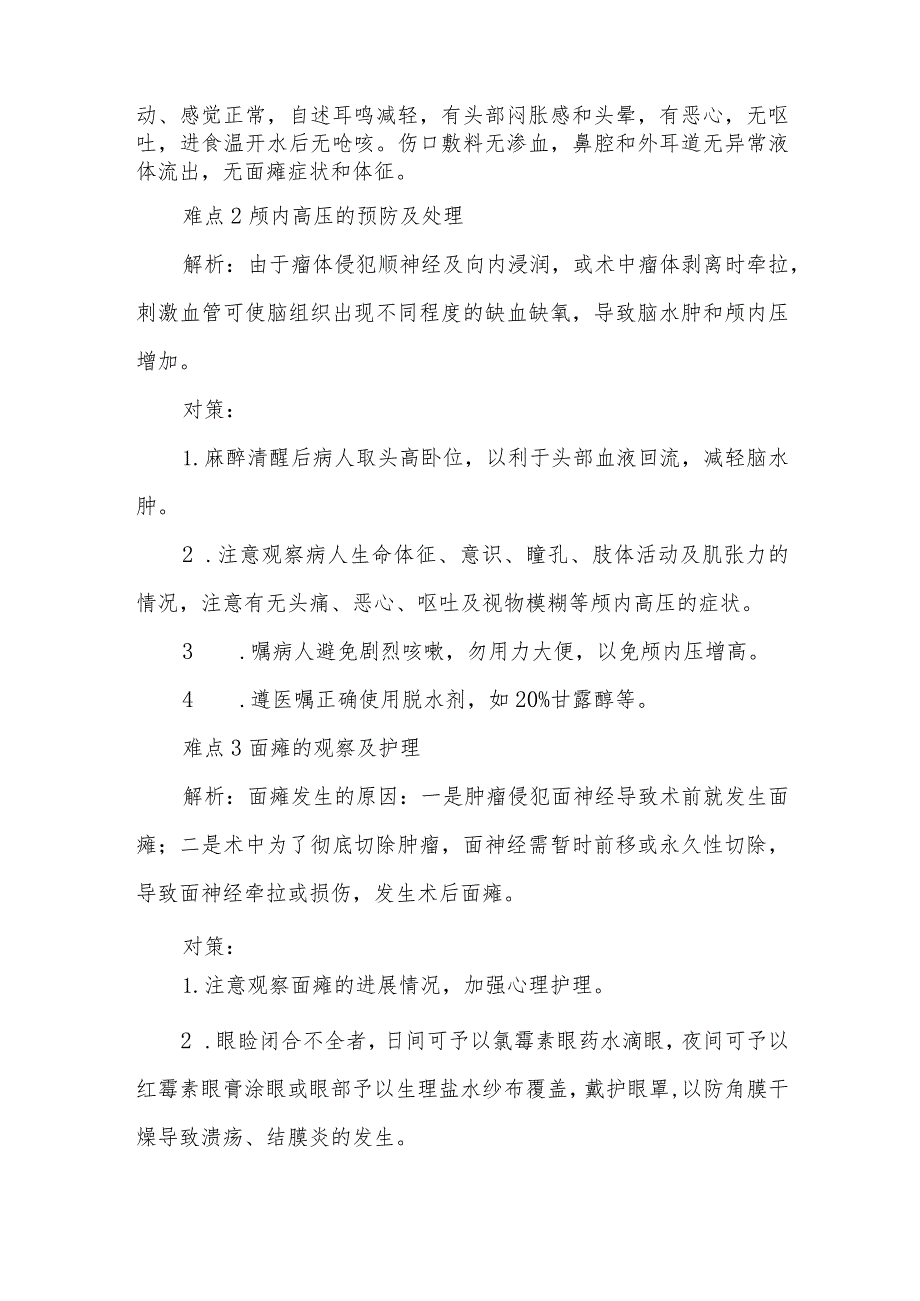 动、感觉正常，自述耳鸣减轻，有头部闷胀感和头晕，有恶心，无呕
吐，进食温开水后无呛咳。伤口敷料无渗血，鼻腔和外耳道无异常液
体流出，无面瘫症状和体征。
难点 2 颅内高压的预防及处理
解析：由于瘤体侵犯顺神经及向内浸润，或术中瘤体剥离时牵拉，
刺激血管可使脑组织出现不同程度的缺血缺氧，导致脑水肿和颅内压
增加。
对策：
1.麻醉清醒后病人取头高卧位，以利于头部血液回流，减轻脑水
肿。
2 .注意观察病人生命体征、意识、瞳孔、肢体活动及肌张力的
情况，注意有无头痛、恶心、呕吐及视物模糊等颅内高压的症状。
3 .嘱病人避免剧烈咳嗽，勿用力大便，以免颅内压增高。
4 .遵医嘱正确使用脱水剂，如 20%甘露醇等。
难点 3 面瘫的观察及护理
解析：面瘫发生的原因：一是肿瘤侵犯面神经导致术前就发生面
瘫；二是术中为了彻底切除肿瘤，面神经需暂时前移或永久性切除，
导致面神经牵拉或损伤，发生术后面瘫。
对策：
1.注意观察面瘫的进展情况，加强心理护理。
2 .眼睑闭合不全者，日间可予以氯霉素眼药水滴眼，夜间可予以
红霉素眼膏涂眼或眼部予以生理盐水纱布覆盖，戴护眼罩,以防角膜干
燥导致溃疡、结膜炎的发生。